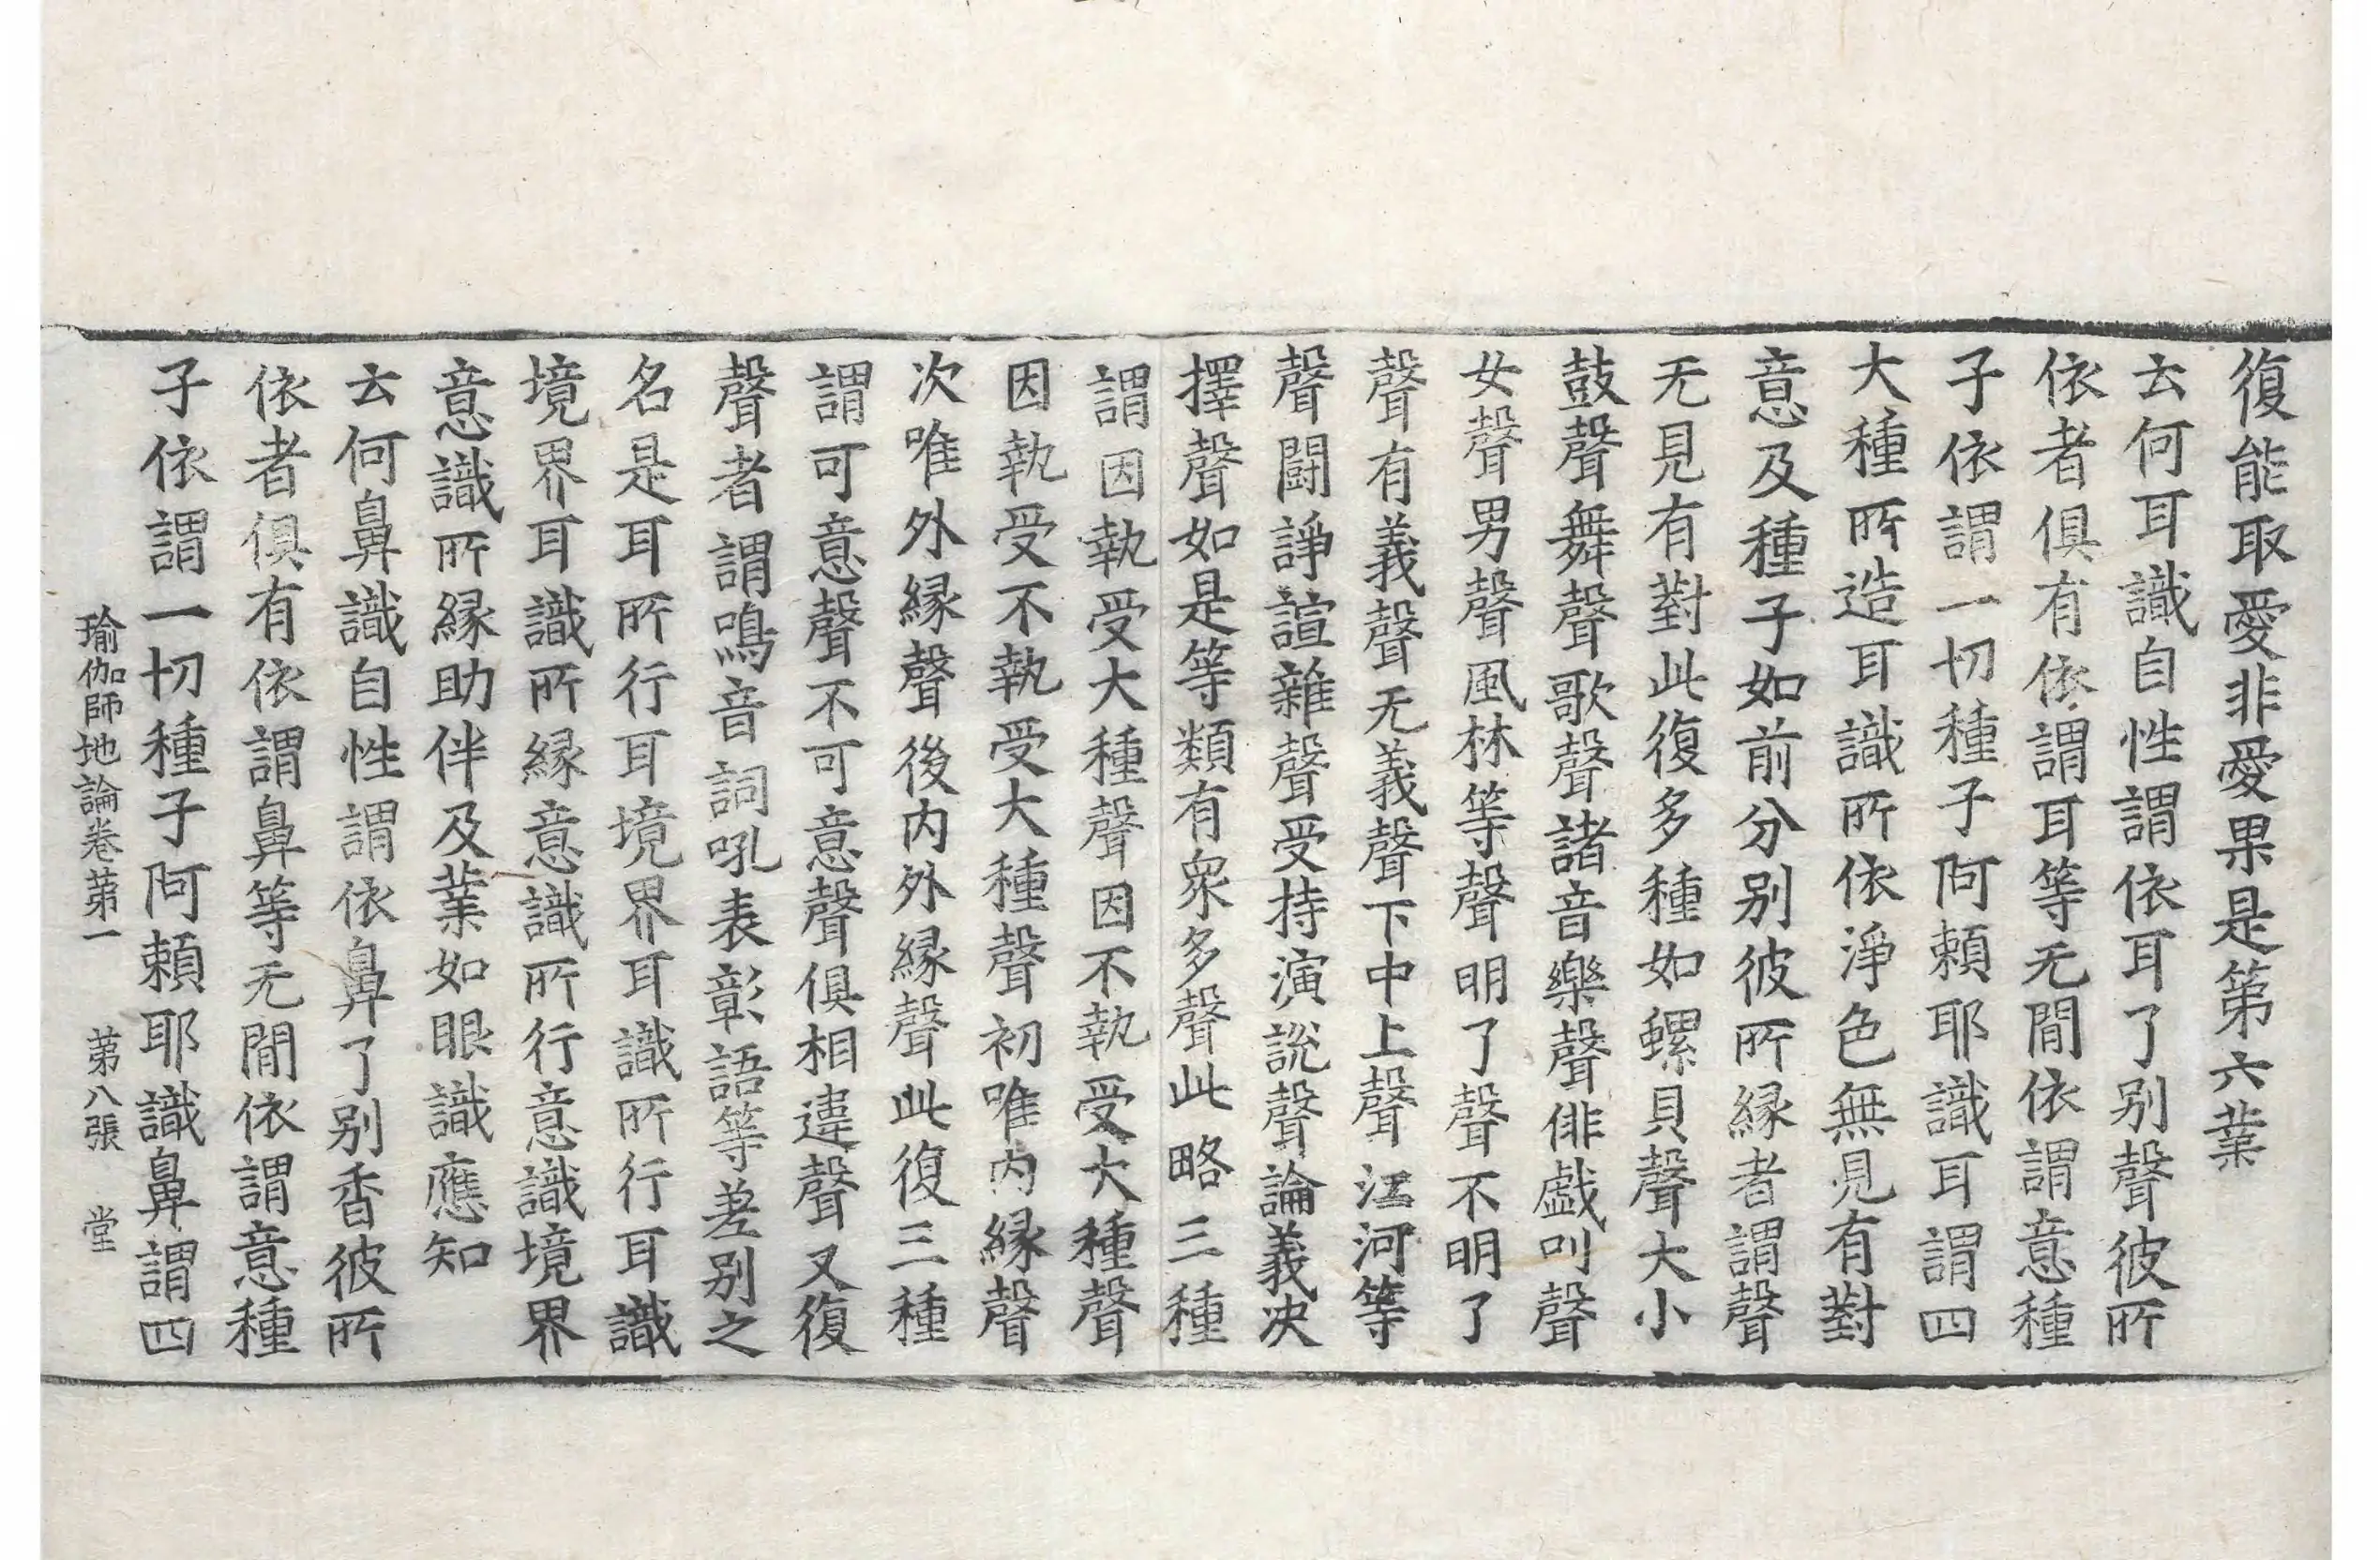 復能取愛非愛果是第六業
云何耳識自性謂依耳了別聲彼所
依者俱有依謂耳等无閒依謂意種
子依謂一切種子阿頼耶識耳謂四
大種所造耳識所依淨色無見有對
意及種子如前分别彼所縁者謂聲
无見有對此復多種如螺貝聲大小
鼓聲舞聲歌聲諸音樂聲俳戱叫聲
女聲男聲風林等聲明了聲不明了
聲有義聲无義聲下中上聲江河等
聲鬪諍諠雜聲受持演說聲論義決
擇聲如是等類有衆多聲此略三種
謂因執受大種聲因不執受大種聲
因執受不執受大種聲初唯内縁聲
次唯外縁聲後内外縁聲此復三種
謂可意聲不可意聲俱相違聲又復
聲者謂鳴音詞吼表彰語等差别之
名是耳所行耳境界耳識所行耳識
境界耳識所縁意識所行意識境界
意識所縁助伴及業如眼識應知
云何鼻識自性謂依鼻了别香彼所
依者俱有依謂鼻等无閒依謂意種
子依謂一切種子阿頼耶識鼻謂四
瑜伽師地論卷苐一 苐八張 堂